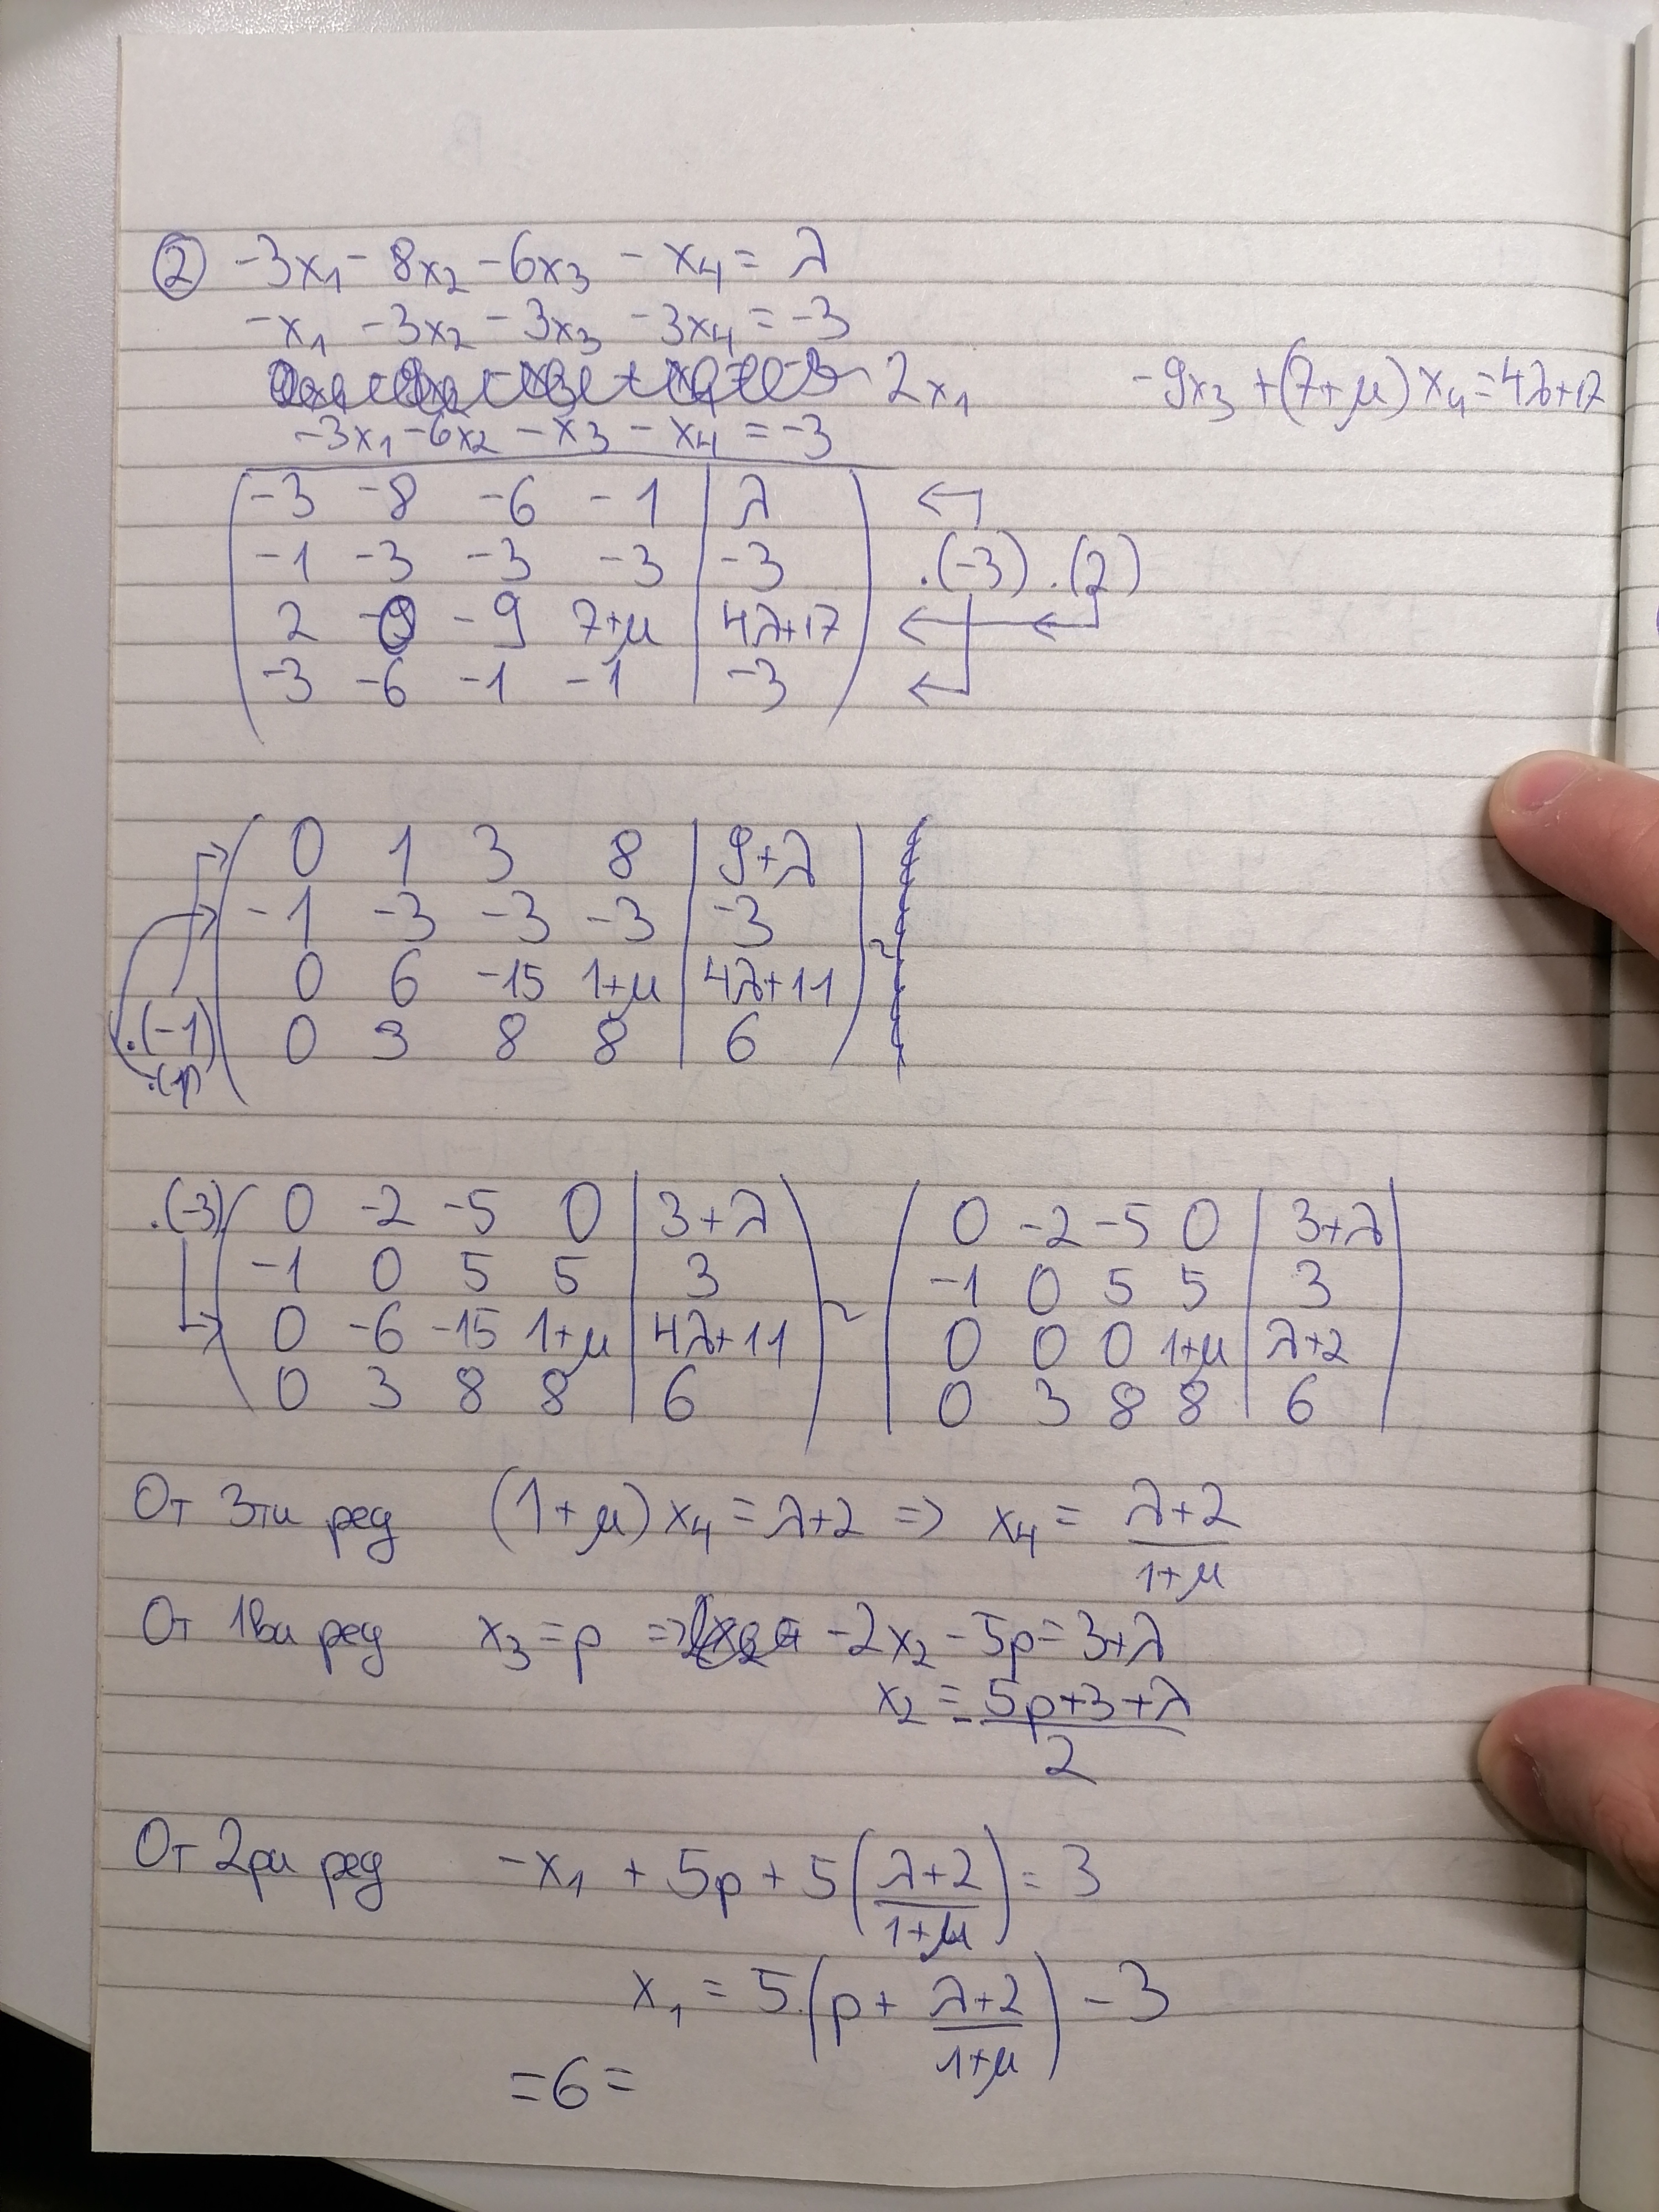 ② -3x₁ - 8x₂ - 6x₃ - x₄ = λ
-x₁ - 3x₂ - 3x₃ - 3x₄ = -3
2x₁ -9x₃ + (7+μ) x₄ = 4λ+17
-3x₁ - 6x₂ - x₃ - x₄ = -3
-3 -8 -6 -1 | λ
-1 -3 -3 -3 | -3 .(-3) .(2)
2 0 -9 7+μ | 4λ+17
-3 -6 -1 -1 | -3
0 1 3 8 | 9+λ
-1 -3 -3 -3 | -3 ~
0 6 -15 1+μ | 4λ+11
.(-1) 0 3 8 8 | 6
.(1)
.(-3) 0 -2 -5 0 | 3+λ
-1 0 5 5 | 3
0 -6 -15 1+μ | 4λ+11 ~
0 3 8 8 | 6
0 -2 -5 0 | 3+λ
-1 0 5 5 | 3
0 0 0 1+μ | λ+2
0 3 8 8 | 6
От 3ти ред (1+μ) x₄ = λ+2 => x₄ = (λ+2)/(1+μ)
От 1ви ред x₃ = p => -2x₂ - 5p = 3+λ
x₂ = -(5p+3+λ)/2
От 2ри ред -x₁ + 5p + 5((λ+2)/(1+μ)) = 3
x₁ = 5.(p + (λ+2)/(1+μ)) - 3
=6=